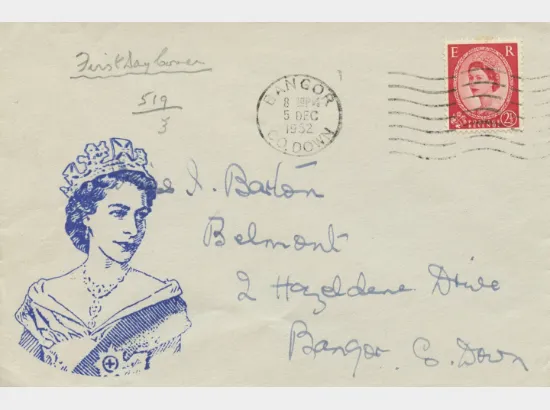 First Day Cover
519
3
BANGOR
8 PM
5 DEC
1952
CO. DOWN
E R
2½
I. Barton
Belmont
2 Hazeldene Drive
Bangor Co. Down